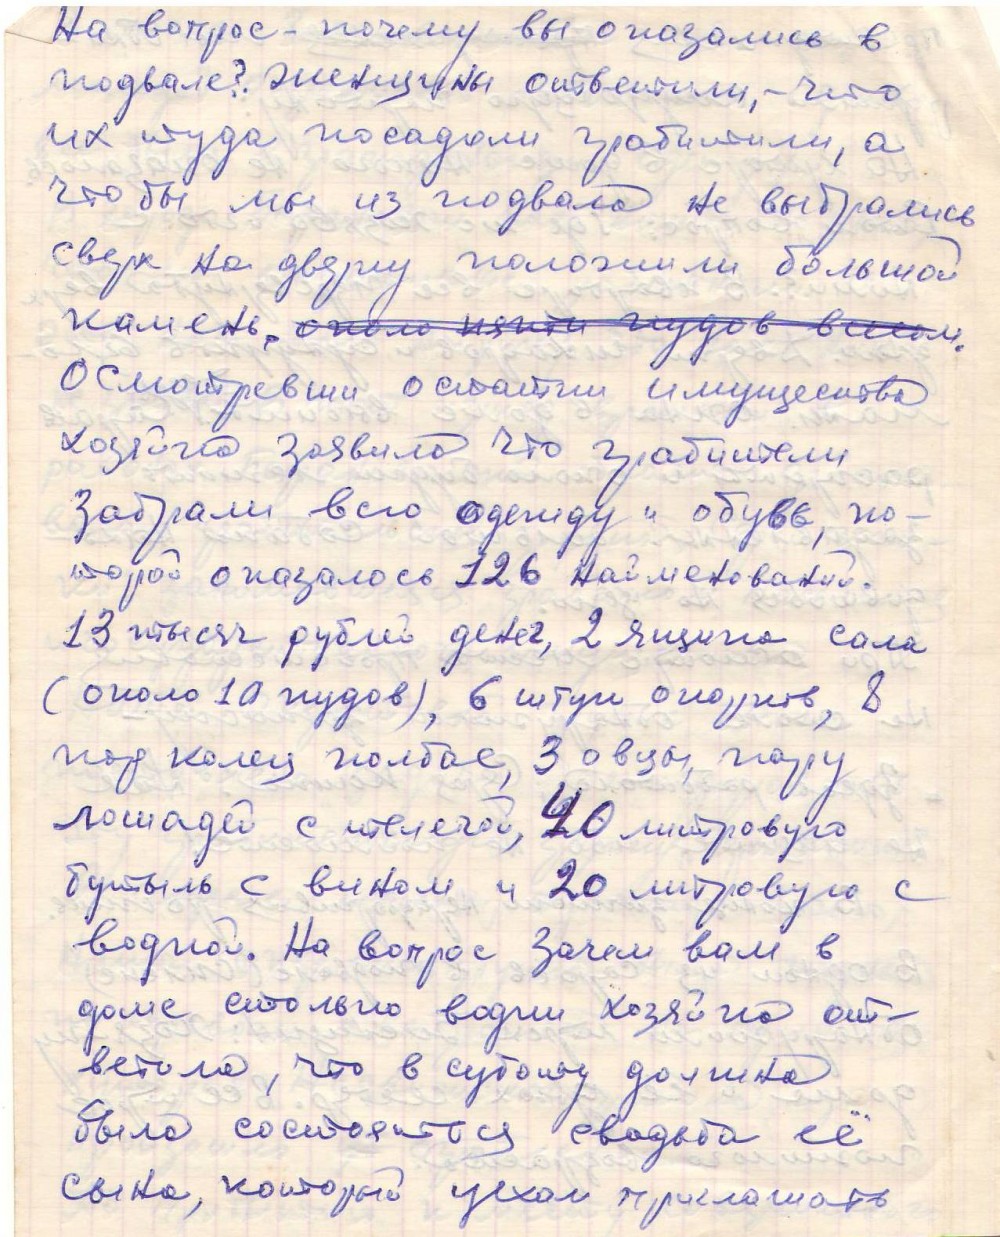 На вопрос - почему вы оказались в
подвале? Женщины ответили, - что
их туда посадили грабители, а
чтобы мы из подвала не выбрались
сверх на дверку положили большой
камень, около пяти пудов весом.
Осмотревши остатки имущества
хозяйка заявила что грабители
забрали всю одежду и обувь, ко-
торой оказалось 126 наименований.
13 тысяч рублей денег, 2 ящика сала
(около 10 пудов), 6 штук окорков, 8
под колец колбас, 3 овцы, пару
лошадей с телегой, 40 литровую
бутыль с вином и 20 литровую с
водкой. На вопрос зачем вам в
доме столько водки хозяйка от-
ветила, что в субботу должна
была состояться свадьба её
сына, который уехал приглашать